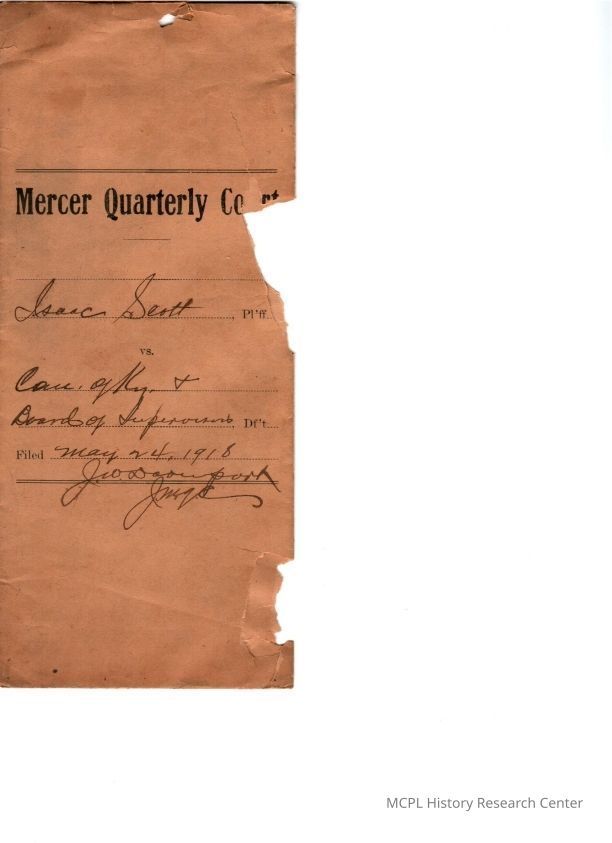 Mercer Quarterly Co rt
Isaac Scott, Pl'ff.
vs.
Com. of Ky. &
Board of Supervisors, Df't.
Filed May 24, 1918
J W Davenport
Judge
MCPL History Research Center